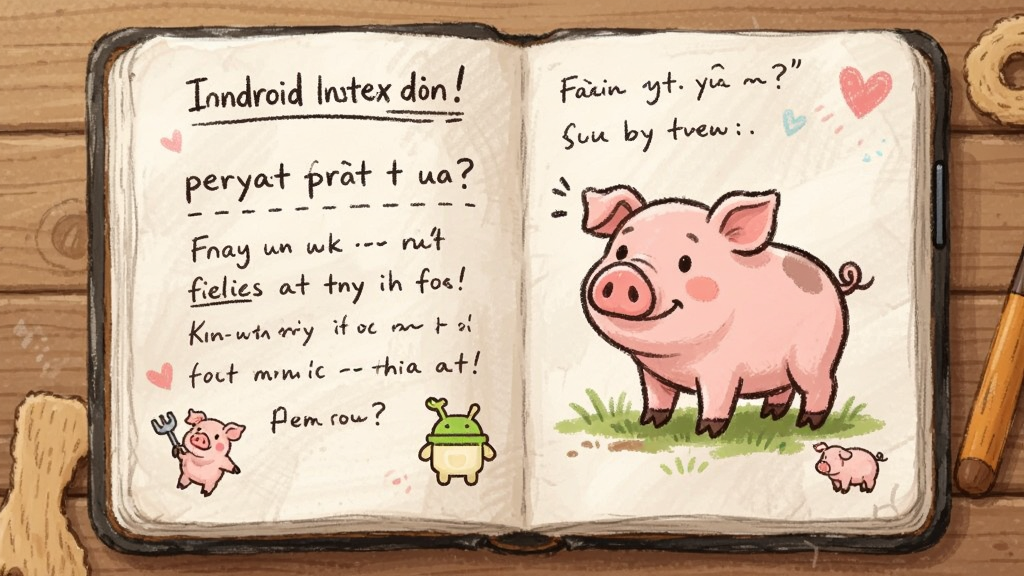 Inndroid Intex dón!
peryat pràt t ua?
Fnay un wk --- nu't
fielies at tny ih foc!
Kin-wtn if oc
foct mimic -- thia at!
Pem row?
Fàiin yt. yiâ m?"
Suu by tvew :.